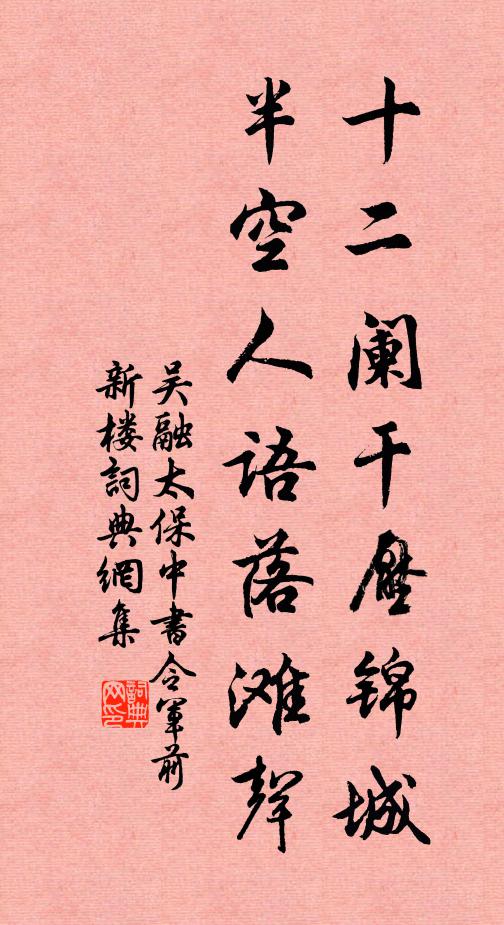 十二阑干壓锦城
半空人语落滩聲
吴融太保中書令軍前
新楼詞典網集
詞典网印